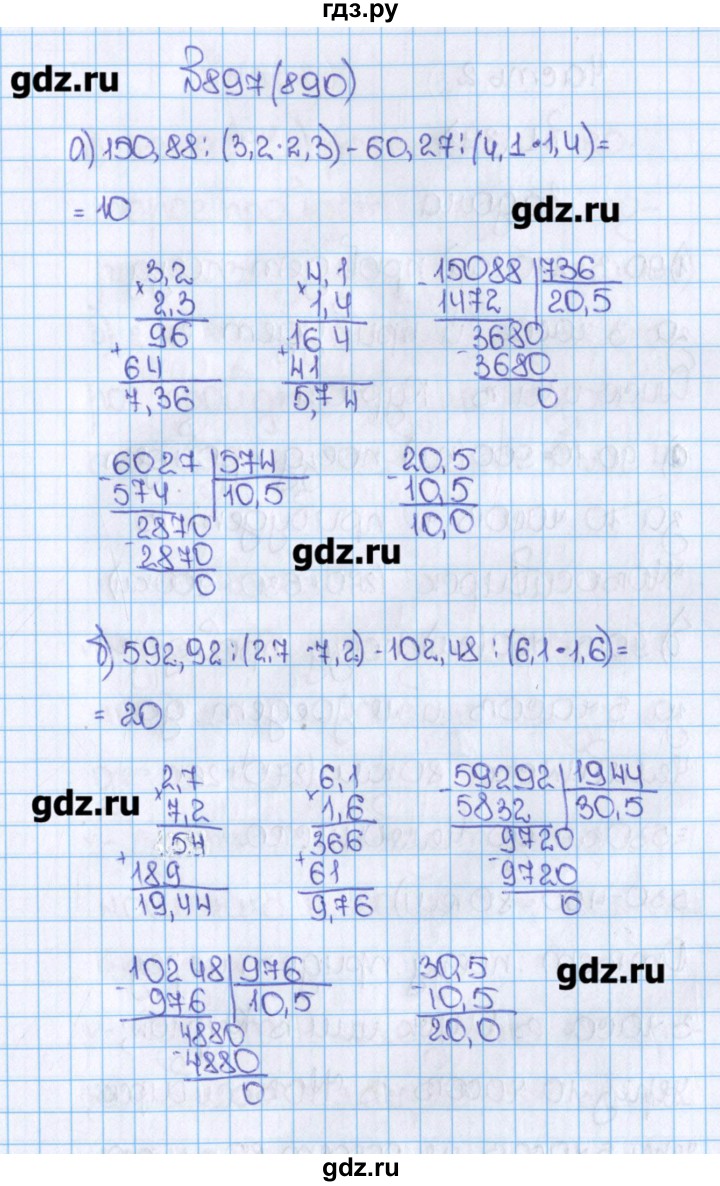 гдз.ру
gdz.ru
№897(890)
а) 150,88:(3,2·2,3)-60,27:(4,1·1,4)=
= 10
gdz.ru
3,2
× 2,3
96
+ 64
7,36
4,1
× 1,4
164
+ 41
5,74
- 15088 | 736
1472 | 20,5
3680
- 3680
0
- 6027 | 574
574 | 10,5
2870
- 2870
0
20,5
- 10,5
10,0
gdz.ru
б) 592,92:(2,7·7,2)-102,48:(6,1·1,6)=
= 20
gdz.ru
2,7
× 7,2
54
+ 189
19,44
6,1
× 1,6
366
+ 61
9,76
- 59292 | 1944
5832 | 30,5
9720
- 9720
0
- 10248 | 976
976 | 10,5
4880
- 4880
0
30,5
- 10,5
20,0
gdz.ru
gdz.ru